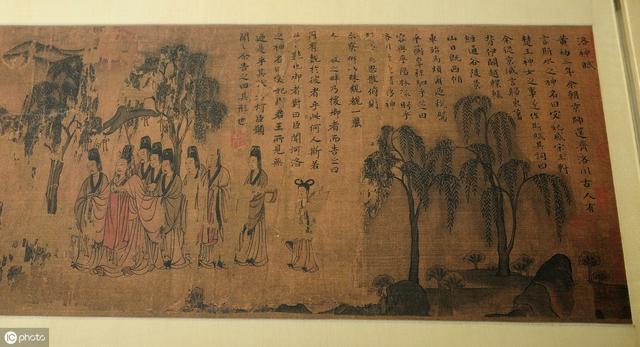 洛神賦
黃初三年余朝京師還濟洛川古人有
言斯水之神名曰宓妃感宋玉對
楚王神女之事遂作斯賦其詞曰
余從京域言歸東藩
背伊闕越轘轅
經通谷陵景
山日既西傾
車殆馬煩爾迺稅駕
乎蘅皋秣駟乎芝田
容與乎陽林流眄乎
洛川於是精移神
思散俯則
未察仰以殊觀覩一麗
人
之畔乃援御者而告之曰
爾有覿於彼者乎此何人斯若
此之豔也御者對曰臣聞河洛
之神名曰宓妃則君王所見無
迺是乎其狀若何臣願
聞之余告之曰其形也
iC photo